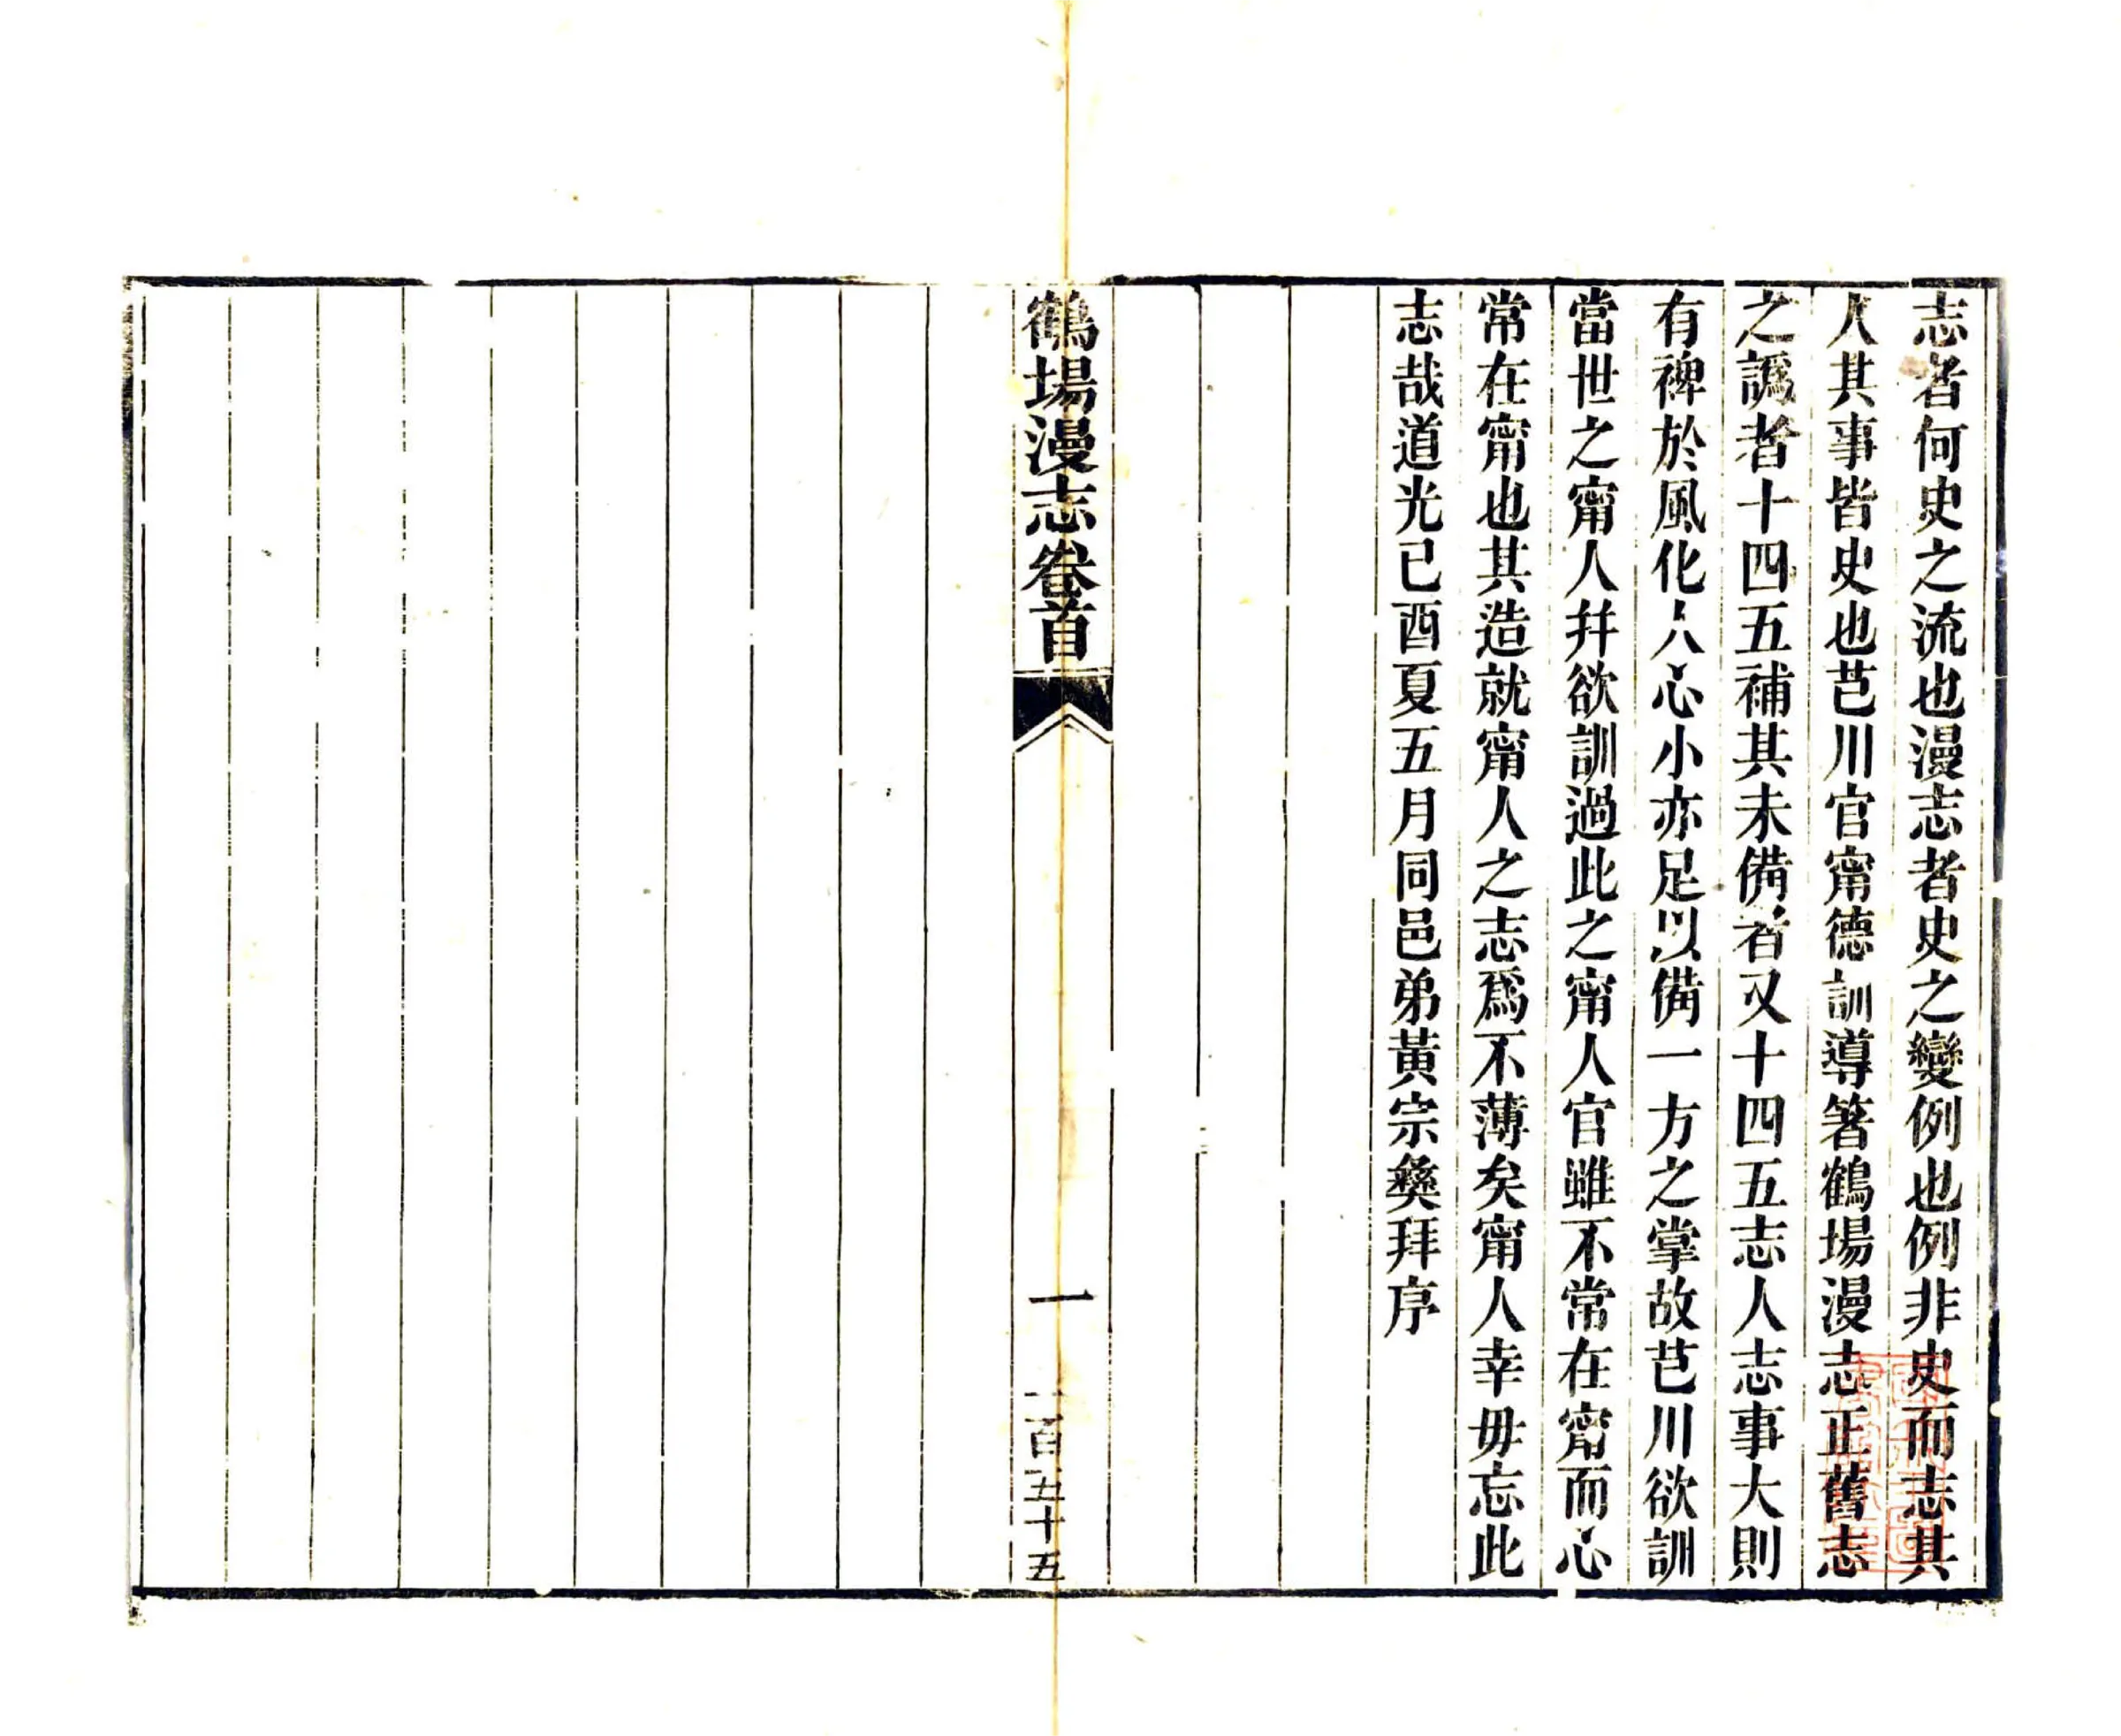 志者何史之流也漫志者史之變例也例非史而志其
人其事皆史也芑川官甯德訓導箸鶴場漫志正舊志
之譌者十四五補其未備者又十四五志人志事大則
有裨於風化人心小亦足以備一方之掌故芑川欲訓
當世之甯人幷欲訓過此之甯人官雖不常在甯而心
常在甯也其造就甯人之志爲不薄矣甯人幸毋忘此
志哉道光已酉夏五月同邑弟黃宗彝拜序
鶴場漫志卷首
一
一百五十五